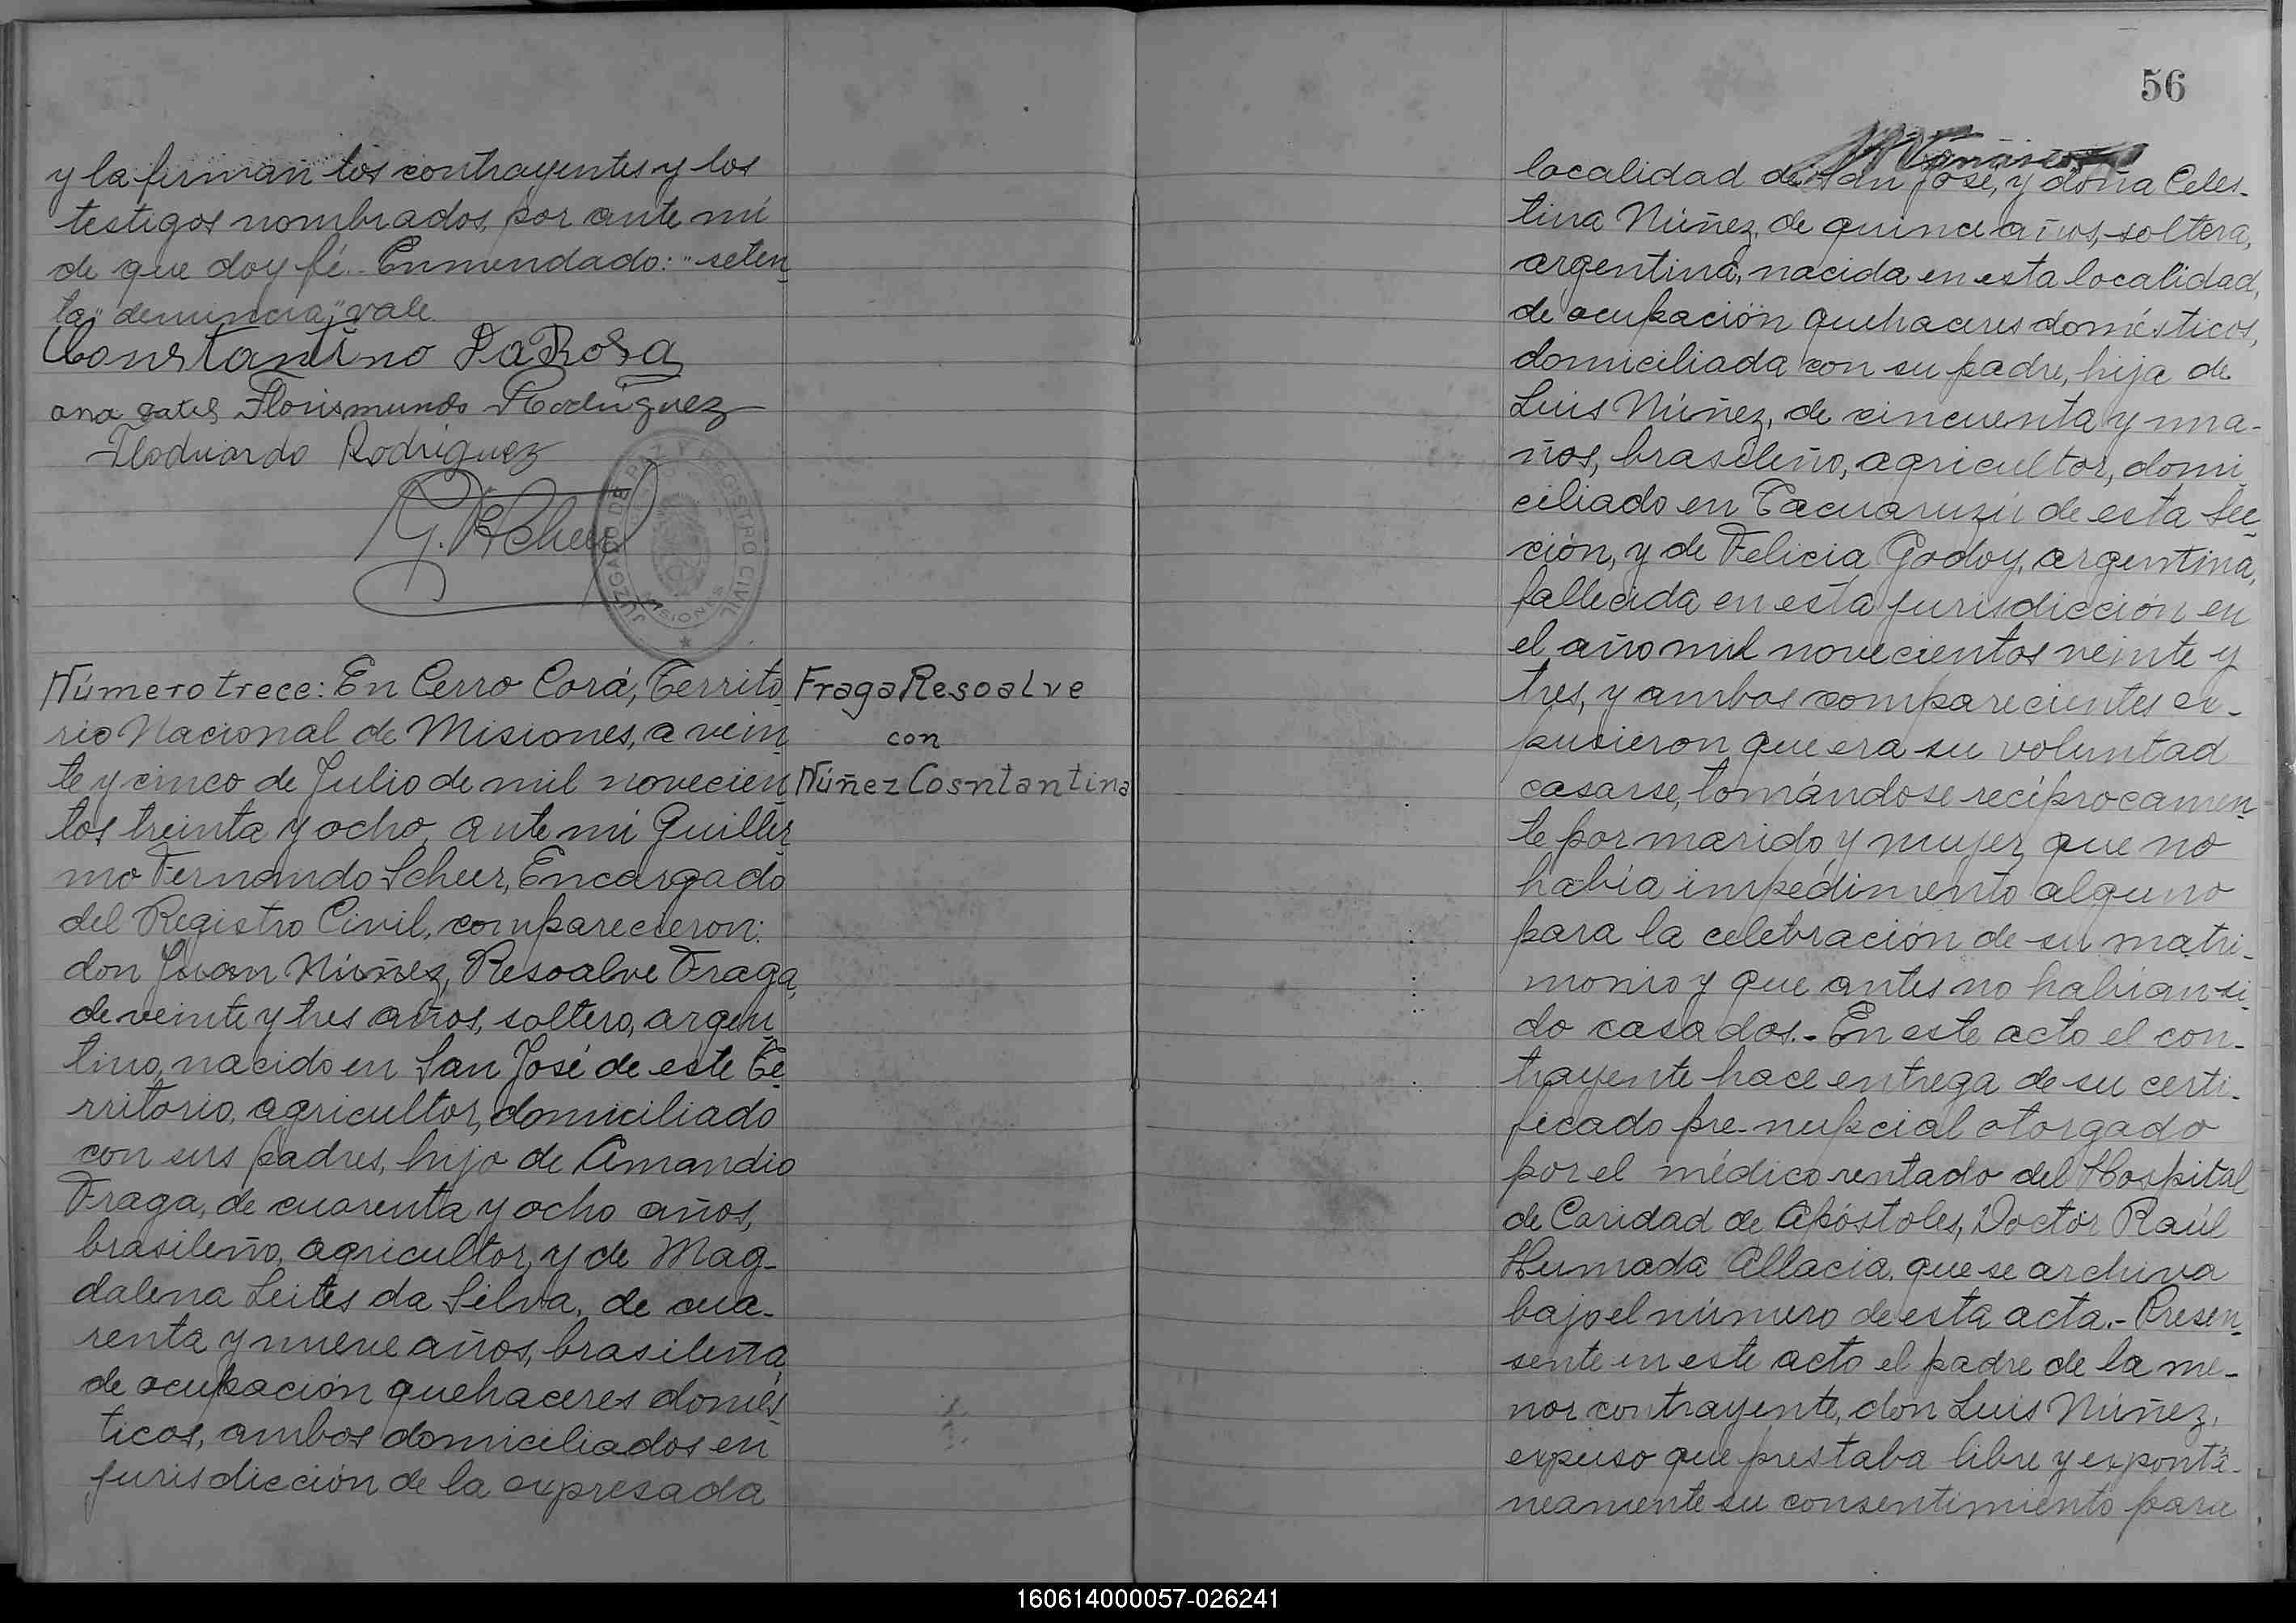 y la firman los contrayentes y los
testigos nombrados, por ante mí
de que doy fé.- Enmendado: "seten
ta" "denuncia", vale.
Constantino DaRosa
Florismundo Rodriguez
Floduardo Rodriguez
G. F. Scheer
JUZGADO DE PAZ Y REGISTRO CIVIL
MISIONES
Número trece: En Cerro Corá, Territo
rio Nacional de Misiones, a vein
te y cinco de Julio de mil novecien
tos treinta y ocho, ante mi Guiller
mo Fernando Scheer, Encargado
del Registro Civil, comparecieron:
don Juan Núñez, Resoalve Fraga,
de veinte y tres años, soltero, argen
tino, nacido en San José de este Te
rritorio, agricultor, domiciliado
con sus padres, hijo de Amandio
Fraga, de cuarenta y ocho años,
brasileño, agricultor, y de Mag-
dalena Leites da Silva, de cua-
renta y nueve años, brasileña,
de ocupación quehaceres domés
ticos, ambos domiciliados en
jurisdicción de la expresada
Fraga Resoalve
con
Núñez Cosntantina
56
localidad de San José, y doña Celes-
tina Núñez, de quince años, soltera,
argentina, nacida en esta localidad,
de ocupación quehaceres domésticos,
domiciliada con su padre, hija de
Luis Núñez, de cincuenta y un a-
ños, brasileño, agricultor, domi
ciliado en Tacuaruzú de esta Sec
ción, y de Felicia Godoy, argentina,
fallecida en esta jurisdicción en
el año mil novecientos veinte y
tres, y ambos comparecientes ex-
pusieron que era su voluntad
casarse, tomándose recíprocamen
te por marido y mujer, que no
había impedimento alguno
para la celebración de su matri-
monio y que antes no habían si
do casados.- En este acto el con-
trayente hace entrega de su certi-
ficado pre-nupcial otorgado
por el médico rentado del Hospital
de Caridad de Apóstoles, Doctor Raúl
Humada Allacia, que se archiva
bajo el número de esta acta.- Presen
sente en este acto el padre de la me-
nor contrayente, don Luis Núñez,
expuso que prestaba libre y exponta-
neamente su consentimiento para
160614000057-026241